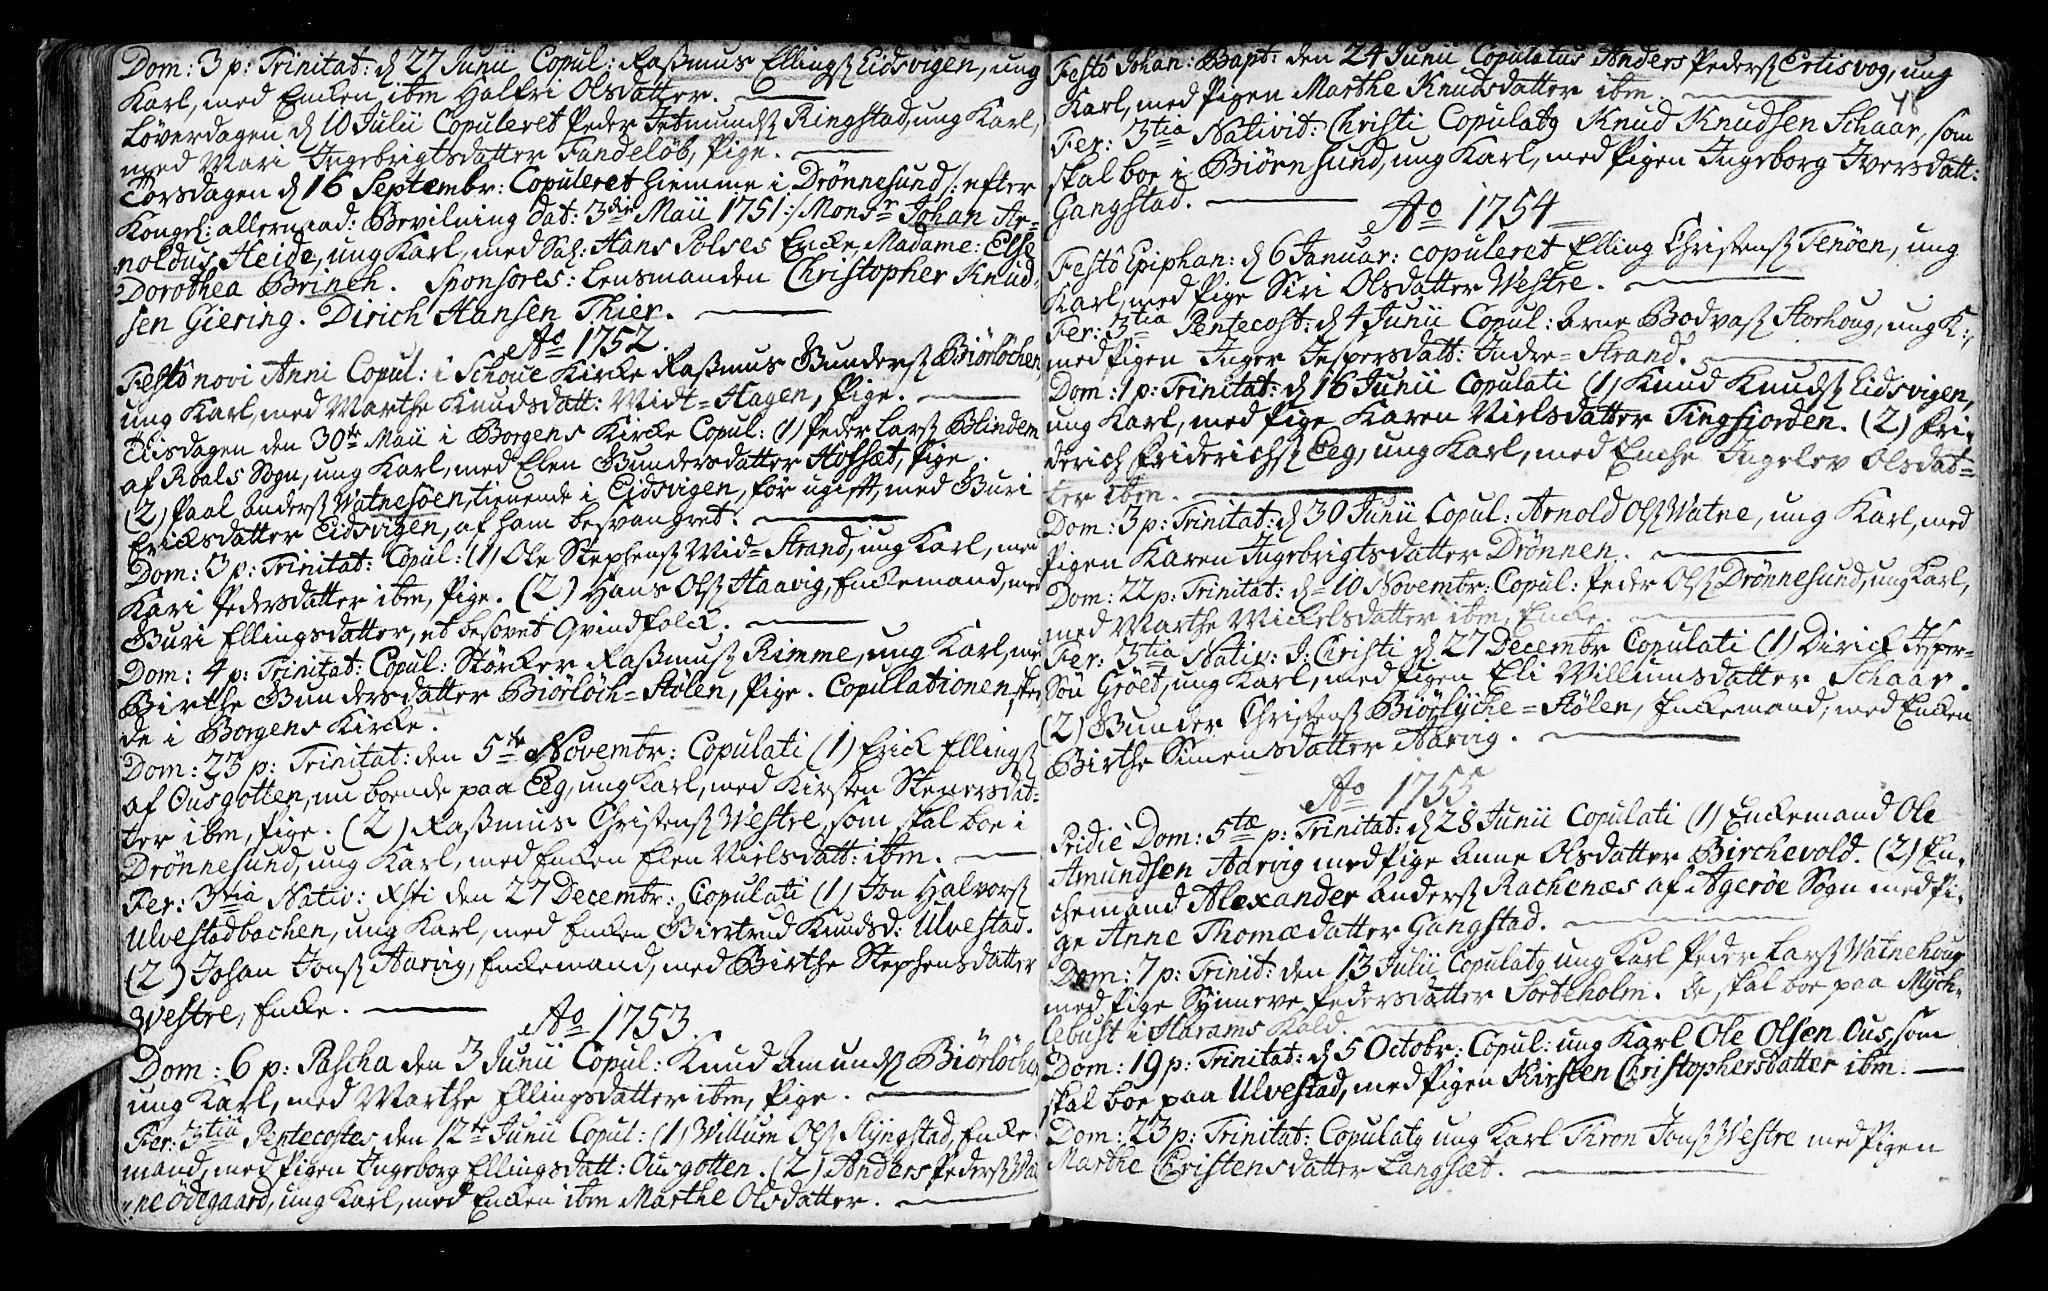 Dom: 3 p: Trinitat: d 27 Junii Copul: Rasmus Ellingsß Eidsvigen, ung
Karl, med Encken ibm Halfri Olsdatter.
Løverdagen d 10 Julii Copuleret Peder Jetmundsß Ringstad, ung Karl,
med Mari Ingebrigtsdatter Fandeløb, Pige.
Torsdagen d 16 Septembr: Copuleret hiemme i Drønnesund /: efter
Kongel: allernaad: Bevilning dat: 3die Maii 1751 :/ Monsr Johan Ar=
noldus Heide, ung Karl, med Sal: Hans Polses Encke Madame: Else
Dorothea Brinch. Sponsores: Lensmanden Christopher Knud
sen Giering. Dirich Hansen Thier.
Ao 1752.
Festo novi Anni Copul: i Schoue Kircke Rasmus Gundersß Biörlöchen,
ung Karl, med Marthe Knudsdatt: Midt=Hagen, Pige.
Tiisdagen den 30te Maii i Borgens Kircke Copul: (1) Peder Larsß Blindem
af Roals Sogn, ung Karl, med Elen Gundersdatter Hofsæt, Pige.
(2) Paal Andersß Watnesöen, tienende i Eidsvigen, för ugift, med Guri
Ericksdatter Eidsvigen, af ham besvangret.
Dom: 3 p: Trinitat: Copul: (1) Ole Stephensß Mid=Strand, ung Karl, med
Kari Pedersdatter ibm, Pige. (2) Hans Olsß Haavig, Enckemand, med
Guri Ellingsdatter, et besovet Qvindfolck.
Dom: 4 p: Trinitat: Copul: Störcker Rasmusß Rimme, ung Karl, med
Birthe Gundersdatter Biörlöch=Stölen, Pige. Copulationen ske
de i Borgens Kircke.
Dom: 23 p: Trinitat: den 5te Novembr: Copulati (1) Erick Ellingsß
af Ousgotten, nu boende paa Eeg, ung Karl, med Kirsten Stenersdat=
ter ibm, Pige. (2) Rasmus Christensß Westre, som skal boe i
Drönnesund, ung Karl, med Encken Elen Nielsdatt: ibm.
Fer: 3tia Nativ: Xsti den 27 Decembr: Copulati (1) Jon Halvorsß
Ulvestadbachen, ung Karl, med Encken Giertrud Knudsd: Ulvestad.
(2) Johan Jonsß Aarvig, Enckemand, med Birthe Stephensdatter
Westre, Encke.
Ao 1753.
Dom: 6 p: Pascha den 3 Junii Copul: Knud Amundsß Biörlöche,
ung Karl, med Marthe Ellingsdatter ibm, Pige.
Fer: 3tia Pentecostes den 12te Junii Copul: (1) Willum Olsß Slyngstad, Encke
mand, med Pigen Ingeborg Ellingsdatt: Ousgotten. (2) Anders Pedersß Wat
ne Ödegaard, ung Karl, med Encken ibm Marthe Olsdatter.
Festo Johan: Bapt: den 24 Junii Copulatus Anders Pedersß Ertisvog, ung
Karl, med Pigen Marthe Knudsdatter ibm.
48
Fer: 3tia Nativit: Christi Copulatg Knud Knudsen Schaar, som
skal boe i Biörnsund, ung Karl, med Pigen Ingeborg Iversdatt:
Gangstad.
Ao 1754
Festo Epiphan: d 6 Januar: copuleret Elling Christensß Tenöen, ung
Karl, med Pige Siri Olsdatter Westre.
Fer: 3tia Pentecost: d 4 Junii Copul: Arne Bodvasß Storhoug, ung K:,
med Pigen Inger Jespersdatt: Indre=Strand.
Dom: 1 p: Trinitat: d 16 Junii Copulati (1) Knud Knudsß Eidsvigen,
ung Karl, med Pige Karen Nielsdatter Tingfiorden. (2) Fri=
derich Friderichsß Eeg, ung Karl, med Encke Ingelev Olsdat=
ter ibm.
Dom: 3 p: Trinitat: d 30 Junii Copul: Arnold Olsß Watne, ung Karl, med
Pigen Karen Ingebrigtsdatter Drönnen.
Dom: 22 p: Trinitat: d 10 Novembr: Copul: Peder Olsß Drönnesund, ung Karl,
med Marthe Mickelsdatter ibm, Encke.
Fer: 3tia Nativ: J: Christi d 27 Decembr Copulati (1) Dirick Jesper=
Sön Gröet, ung Karl, med Pigen Eli Willumsdatter Schaar.
(2) Gunder Christensß Biörlÿche=Stölen, Enckemand, med Encken
Birthe Simensdatter Aarvig.
Ao 1755
Pridie Dom: 5tæ p: Trinitat: d 28 Junii Copulati (1) Enckemand Ole
Amundsen Aarvig med Pige Anne Olsdatter Birchevold. (2) En=
chemand Alexander Andersß Rachenæs af Ageröe Sogn med Pi=
ge Anne Thomædatter Gangstad.
Dom: 7 p: Trinit: den 13 Julii Copulatg ung Karl Peder Larsß Watnehoug
med Pige Synneve Pedersdatter Sortehølm. De skal boe paa Mych=
lebust i Harams Kald.
Dom: 19 p: Trinitat: d 5 Octobr: Copul: ung Karl Ole Olsen Ous, som
skal boe paa Ulvestad, med Pigen Kirsten Christophersdatter ibm.
Dom: 23 p: Trinitat: Copulatg ung Karl Thron Jonsß Westre med Pigen
Marthe Christensdatter Langsæt.